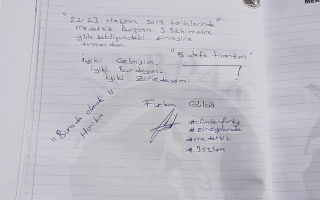 "22-23 Haziran 2019 tarihlerinde"
Medetsiz Dağının 3.524 metre
yüksekliğindeki zirvesine
tırmandım.
"5 defa tırmandım"
İyiki Gelmişim.
İyiki Burdayım.
İyiki Zirvedeyim.
?
"Burada olmak
Harika"
Furkan
#climberfurky
#zirveyolunda
#medetsiz
#3524m
MER